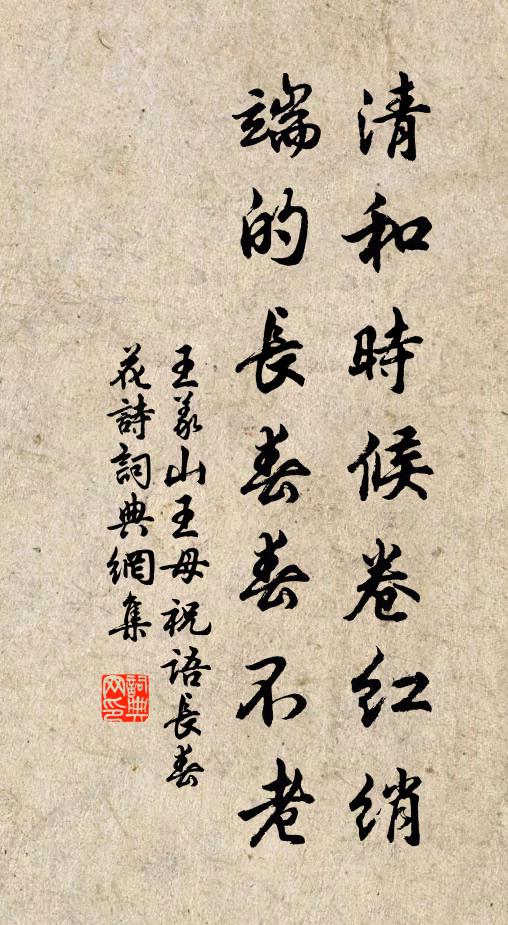 清和時候卷紅綃
端的長春春不老
王義山王母祝語長春
花詩詞典網集
詞典網印